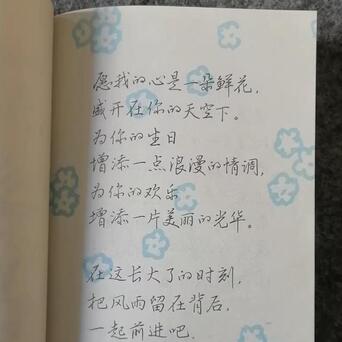 愿我的心是一朵鲜花，
盛开在你的天空下。
为你的生日
增添一点浪漫的情调，
为你的欢乐
增添一片美丽的光华。
在这长大了的时刻，
把风雨留在背后，
一起前进吧，